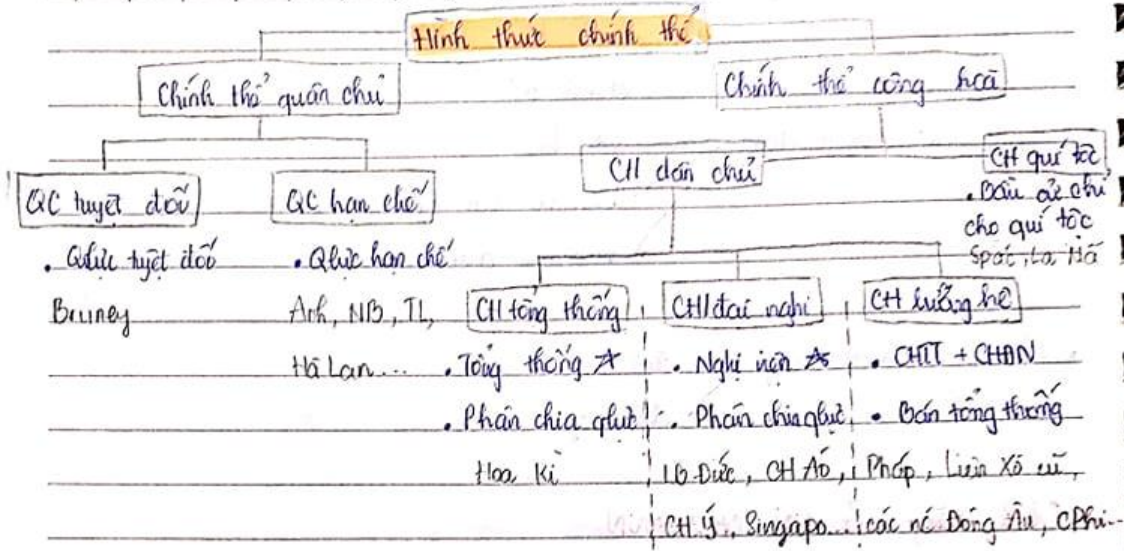 Hình thức chính thể
Chính thể quân chủ
Chính thể cộng hoà
QC tuyệt đối
QC hạn chế
CH dân chủ
CH quí tộc
• Qlực tuyệt đối
Bruney
• Qlực hạn chế
Anh, NB, TL,
Hà Lan...
• Bầu cử chỉ
cho quí tộc
Spac, La Mã
CH tổng thống
• Tổng thống ☆
• Phân chia qlực
Hoa Kì
CH đại nghị
• Nghị viện ☆
• Phân chia qlực
LB Đức, CH Áo,
CH Ý, Singapo...
CH lưỡng hệ
• CHTT + CHĐN
• Bán tổng thống
Pháp, Liên Xô cũ,
các nc Đông Âu, CPhi...